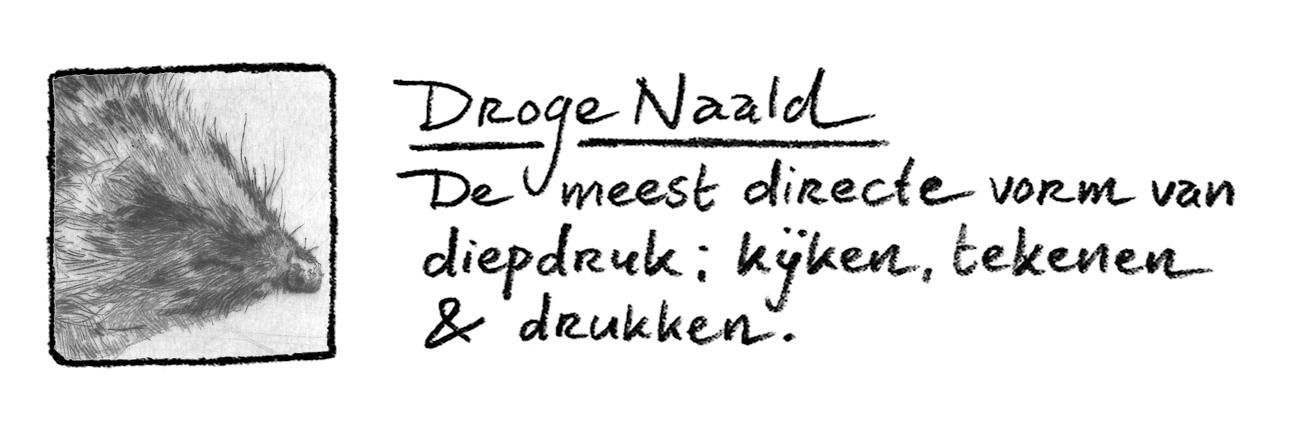 Droge Naald
De meest directe vorm van
diepdruk: kijken, tekenen
& drukken.